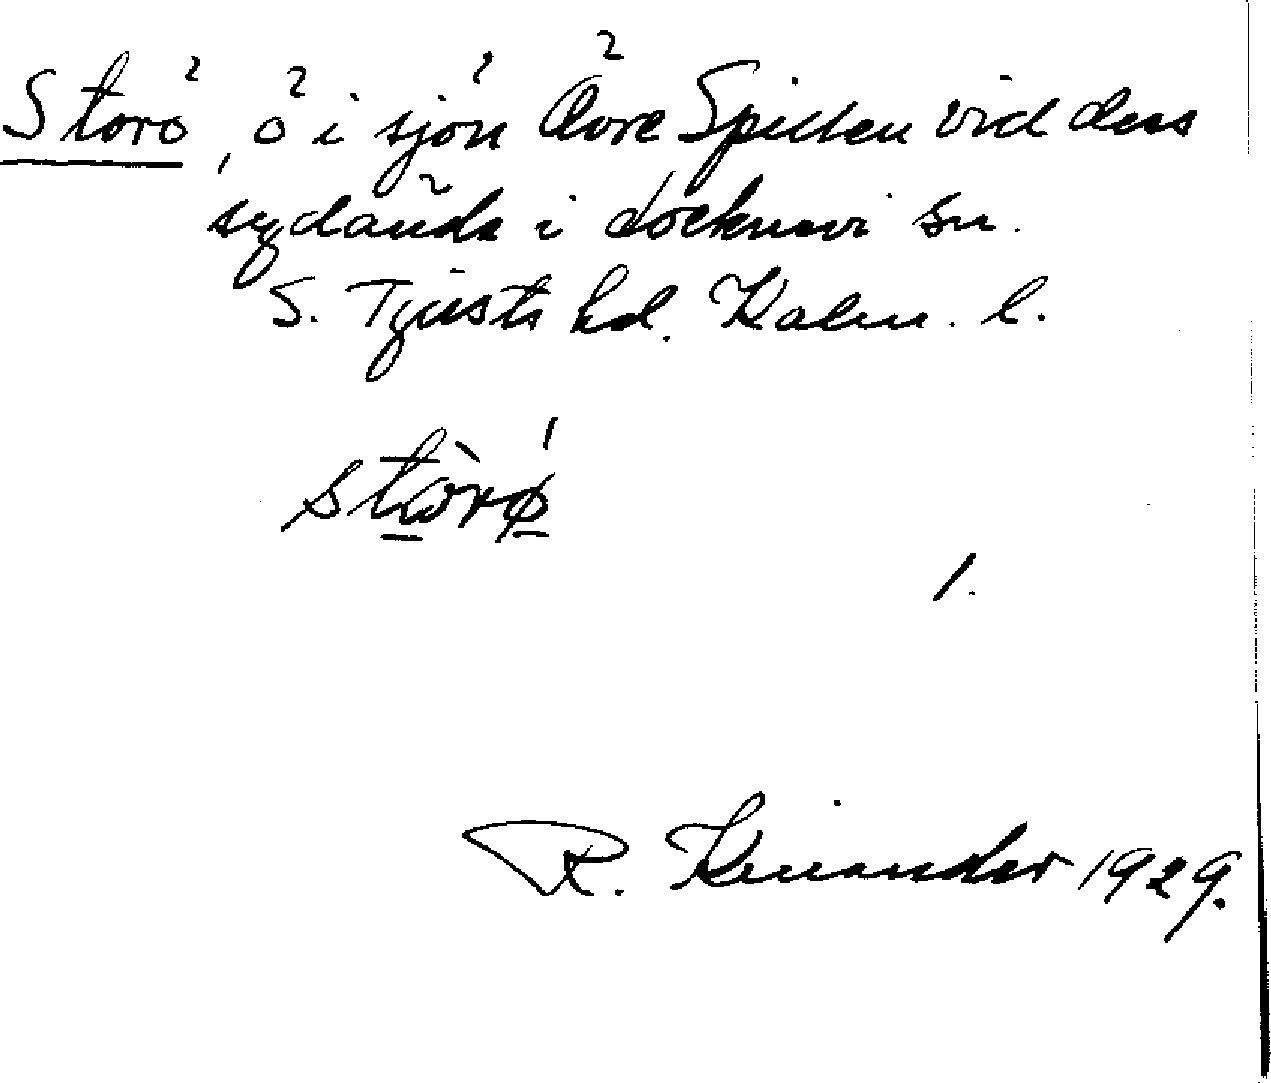 Storö, ö i sjön Övre Spillen vid dess
sydända i Locknevi sn.
S. Tjusts hd. Kalm. l.
stòrǿ
1.
R. Kinander 1929.